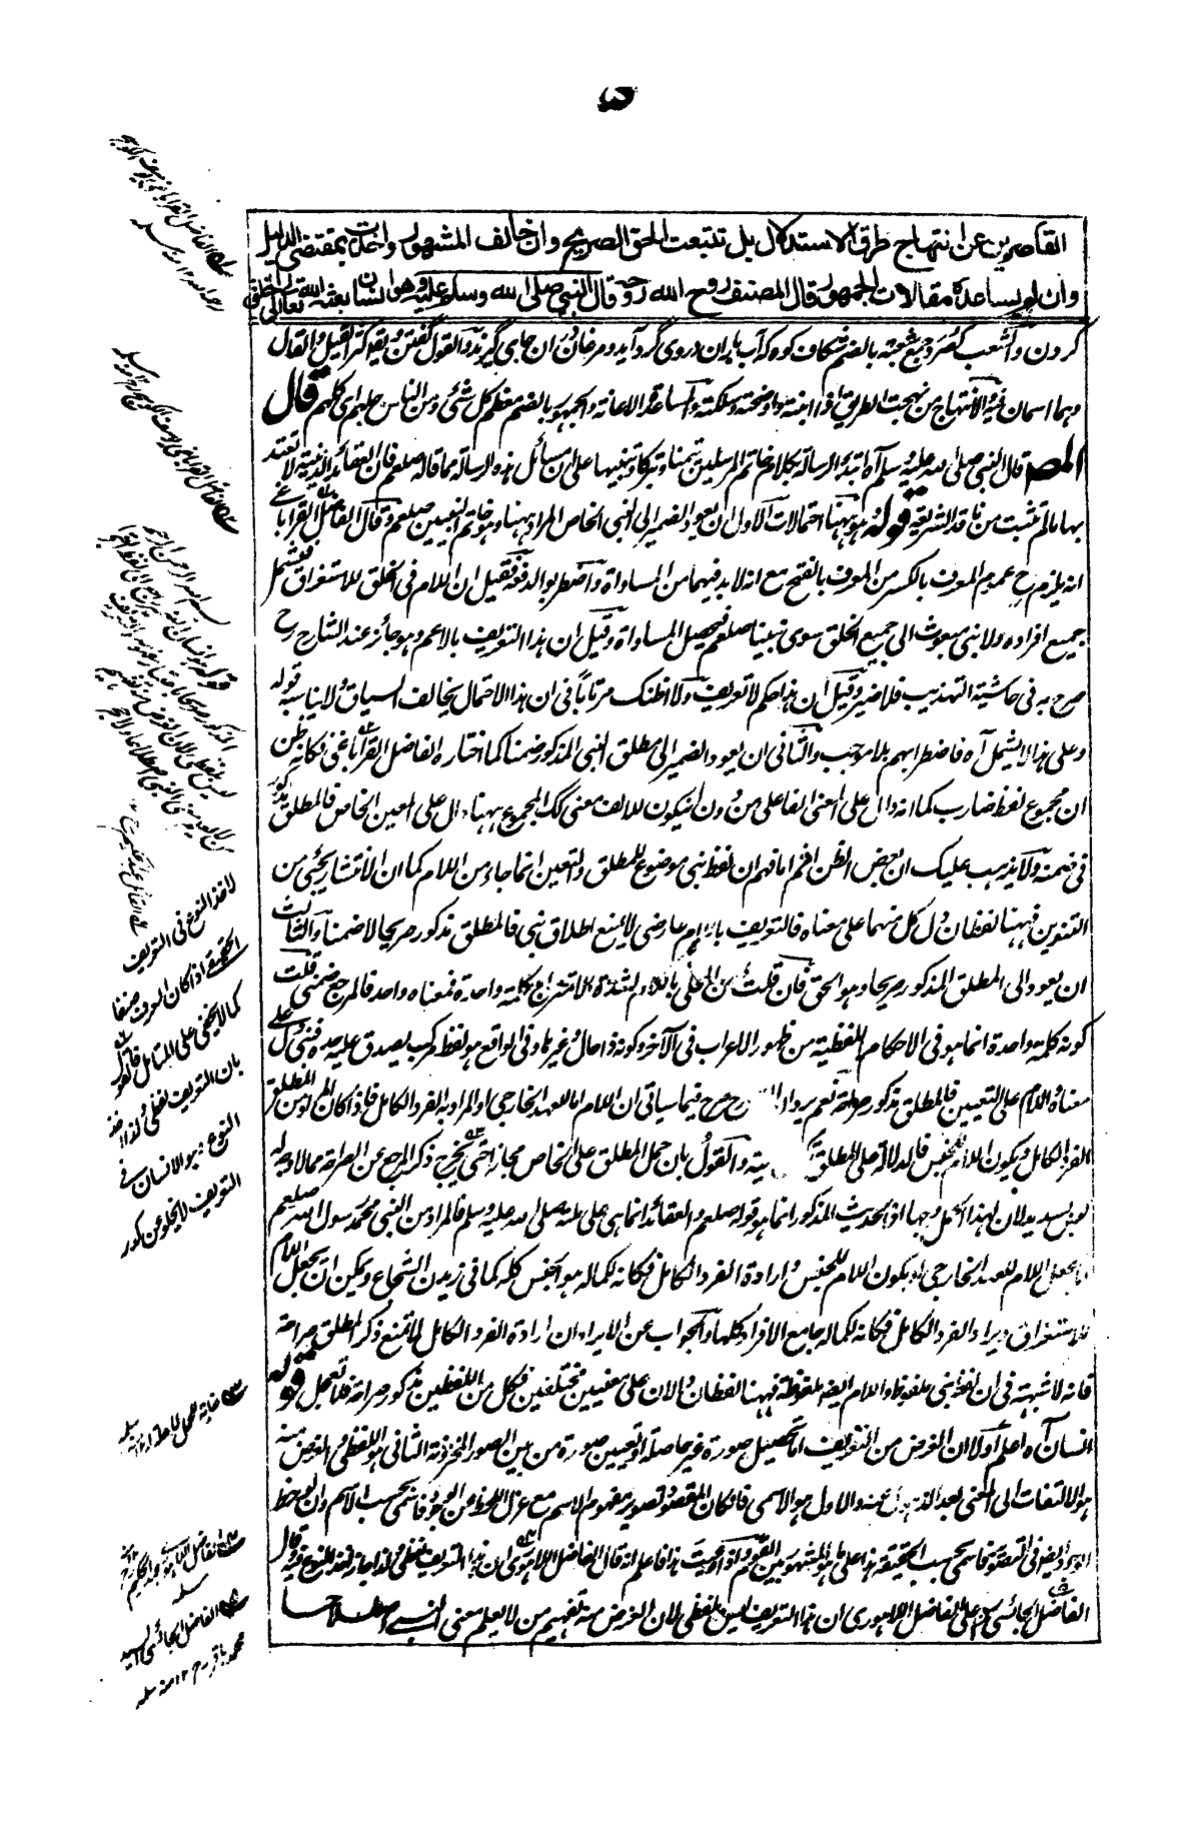 ۵
القاصرين عن انتهاج طرق الاستدلال بل تتبعت الحق الصريح وان خالف المشهور واخذت بمقتضى الدليل
وان لم يساعده مقالات الجمهور قال المصنف روح الله روحه قال النبي صلى الله وسلم عليه وهو انسان بعثه الله تعالى الى الخلق
كردن والشعب كصرد جمع شعبة بالضم شكاف كوه كه آب باران دروى گرد آيد ومرغان دران جاى گيرند والقول گفتن ويقال كثر القيل والقال
وهما اسمان فيه والانتهاج من نهجت الطريق اذا ابنته واوضحته وسلكته والمساعدة الاعانة والجمهور بالضم معظم كل شئ ومن الناس جلهم اى كلهم قال
المص قال النبي صلى الله عليه وسلم آه ابتدأ الرسالة بكلام خاتم المرسلين تيمنا وتبركا وتنبيها على ان مسائل هذه الرسالة مما قاله صلعم فان العقائد الدينية لا تعتد
بها ما لم تثبت من ناقد الشريعة قوله وهو ههنا احتمالات الاول ان يعود الضمير الى النبي الخاص المراد ههنا وهو خاتم النبيين صلعم وقال الفاضل القراباغى
انه يلزم ح عموم المعرف بالكسر من المعرف بالفتح مع انه لابد فيهما من المساواة واضطربوا لدفعه فقيل ان اللام فى الخلق للاستغراق فيشمل
جميع افراده ولا نبي مبعوث الى جميع الخلق سوى نبينا صلعم فيحصل المساواة وقيل ان هذا التعريف بالاعم وهو جائز عند الشارح رح
صرح به فى حاشية التهذيب فلا ضير وقيل ان هذا حكم لا تعريف ولا اظنك مرتابا فى ان هذا الاحتمال يخالف السياق ولا يناسبه قوله
وعلى هذا لا يشمل آه فاضطرابهم بلا موجب والثانى ان يعود الضمير الى مطلق النبي المذكور ضمنا كما اختاره الفاضل القراباغى فكانه ظن
ان مجموع لفظ ضارب كما انه دال على المعنى الفاعلى من دون ان يكون للالف معنى كك المجموع ههنا دال على المعين الخاص فالمطلق مذكور
فى ضمنه ولا يذهب عليك ان بعض الظن اثم اما فهم ان لفظ نبي موضوع للمطلق والتعين انما جاء من اللام كما ان الانتشار يجئ من
التنوين فههنا لفظان دل كل منهما على معناه فالتعريف باللام عارضى لا يمنع اطلاق نبي فالمطلق مذكور صريحا لا ضمنا والثالث
ان يعود الى المطلق المذكور صريحا وهو الحق فان قلت ان المحلى باللام لشدة الامتزاج كلمة واحدة فمعناه واحد فالمرجع ضمنى قلت
كونه كلمة واحدة انما هو فى الاحكام اللفظية من ظهور الاعراب فى الآخر وكونه ذا حال وغيرها وفى الواقع هو لفظ مركب يصدق عليه حده فنبي دل على
معناه واللام على التعيين فالمطلق مذكور صراحة نعم يرد ان الشارح صرح فيما سياتى ان اللام اما للعهد الخارجى او المراد به الفرد الكامل فاذا كان المراد من المطلق
الفرد الكامل ويكون اللام للجنس فالدلالة على المطلق والقول بان حمل المطلق على الخاص مجازا حتى يخرج ذكر المرجع عن الصراحة مما لا وجه له
ليس بسديد لان لهذا الحمل وجها اذ الحديث المذكور انما هو قوله صلعم والعقائد انما هى على ملته صلى الله عليه وسلم فالمراد من النبي محمد رسول الله صلعم
اما بجعل اللام للعهد الخارجى او يكون اللام للجنس وارادة الفرد الكامل فكانه لكماله هو الجنس كله كما فى زيدن الشجاع ويمكن ان يجعل اللام
للاستغراق ويراد الفرد الكامل فكانه لكماله جامع الافراد كلها والجواب عن الايراد ان ارادة الفرد الكامل لا تمنع ذكر المطلق صراحة
فانه لا شبهة فى ان لفظ نبي ملفوظ واللام ايضا ملفوظة فههنا لفظان دالان على معنيين مختلفين فكل من اللفظين مذكور صراحة فلا تعجل قوله
انسان آه اعلم اولا ان الغرض من التعريف اما تحصيل صورة غير حاصلة او تعيين صورة من بين الصور المخزونة الثانى هو اللفظى والغرض منه
هو الالتفات الى المعنى بعد الذهول عنه والاول هو الاسمى فان كان المقصود تصوير مفهوم الاسم مع عزل اللحظ عن الوجود فاسمى بحسب الاسم وان لوحظ
الوجود ايضا فى المقصود فاسمى بحسب الحقيقة هذا على ما هو المشهور بين القوم واذا وعيت هذا فاعلم انه قال الفاضل اللاهورى ان هذا التعريف لفظى ولذا جاز اخذ النوع فيه وقال
الفاضل الجائسى رح على الفاضل اللاهورى ان هذا التعريف ليس بلفظى لان الغرض منه تفهيم من لا يعلم معنى النبي اصطلاحا
لاخذ النوع فى التعريف
الحقيقى اذا كان المعرف صنفا
كما لا يخفى على المتامل فالقول
بان التعريف لفظى ولذا اخذ
النوع وهو الانسان فى
التعريف لا يخلو عن كدر
الفاضل الجائسى السيد
محمد باقر رح ١٢ منه سلمه